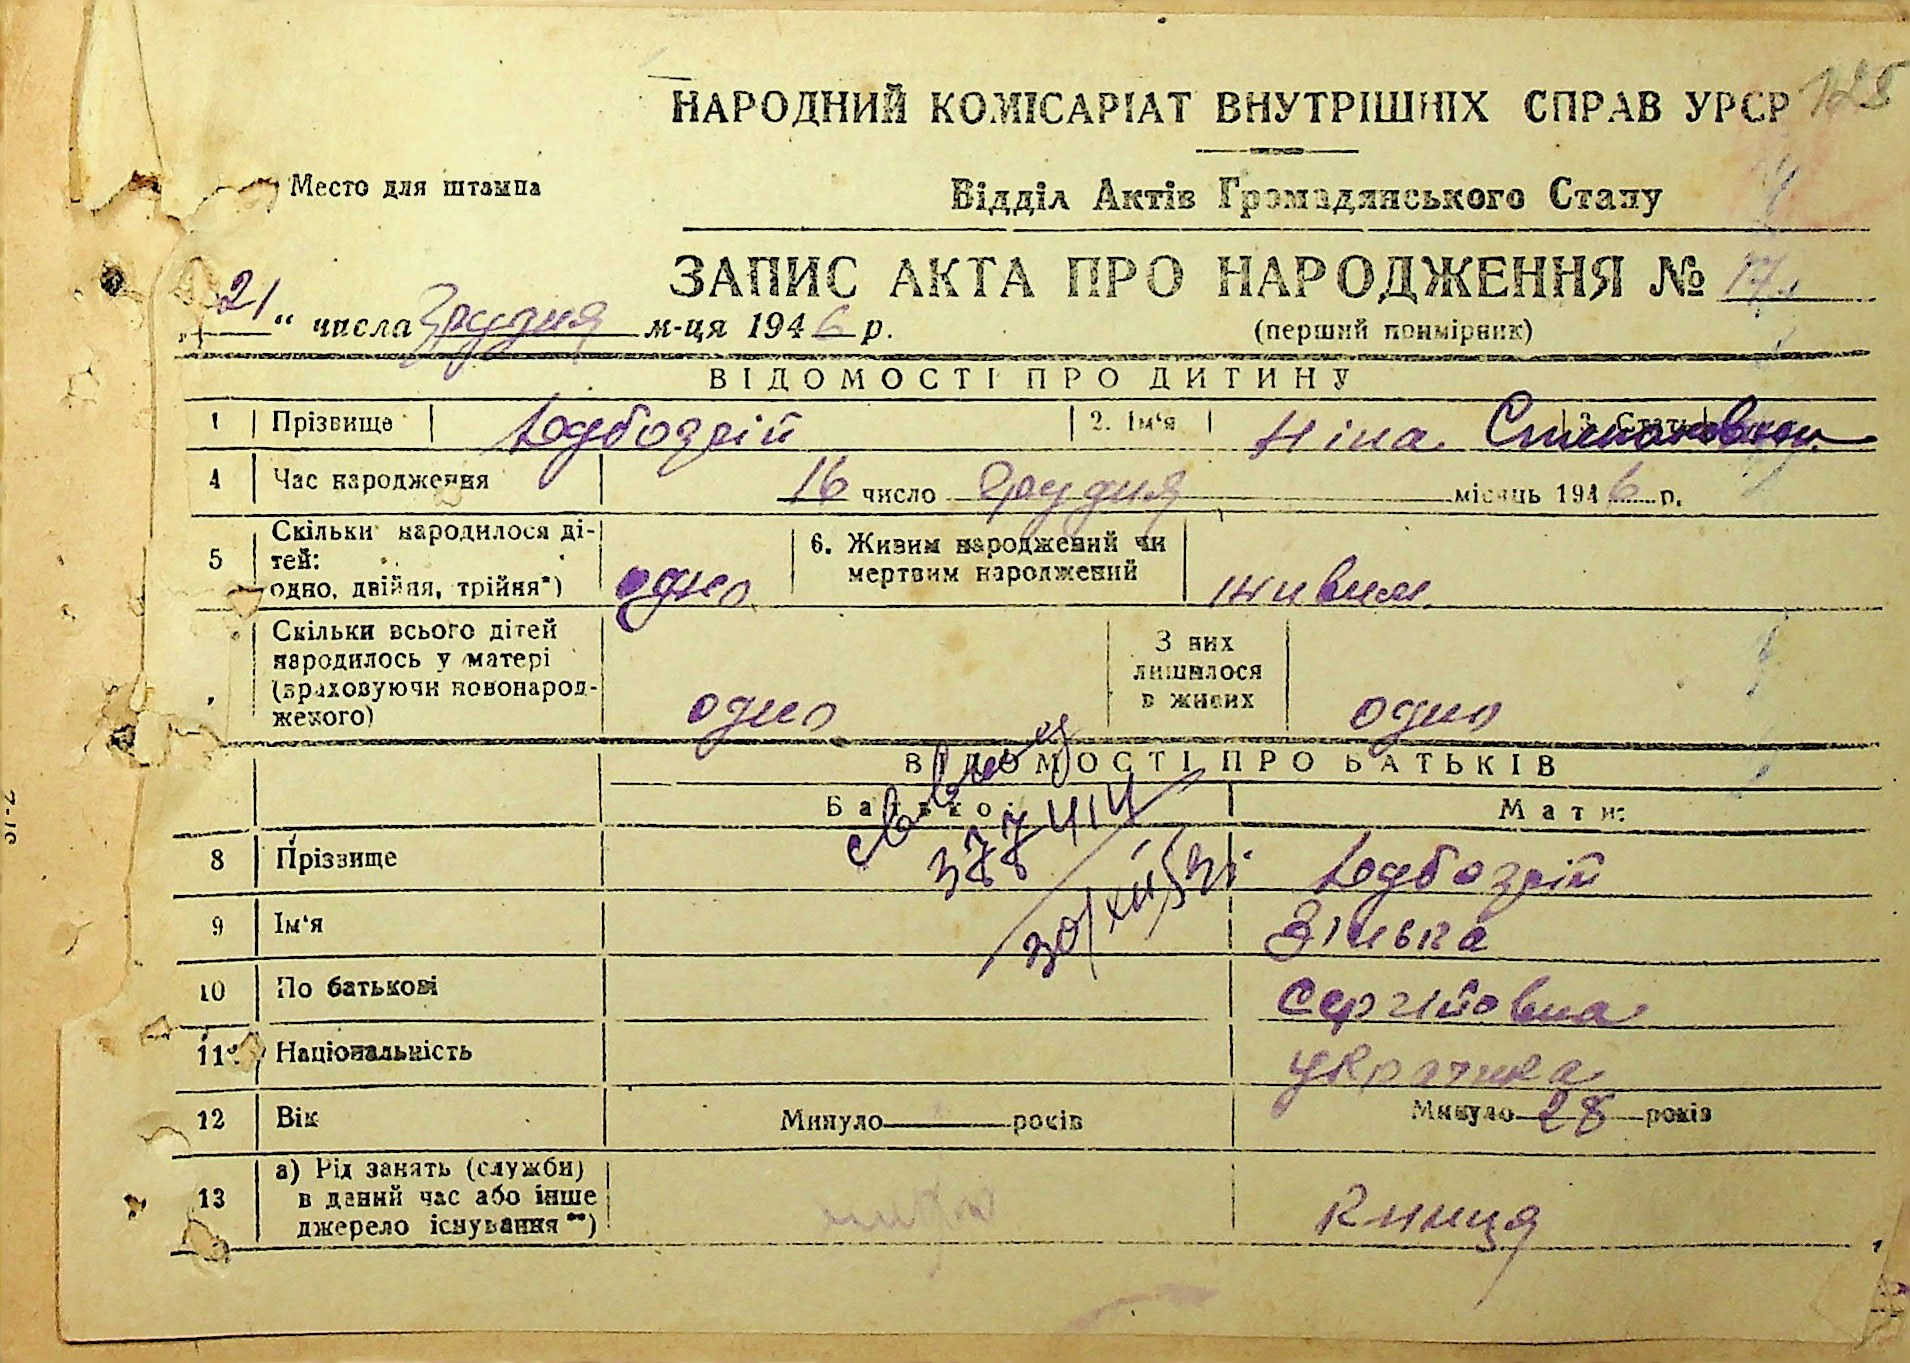 128
НАРОДНИЙ КОМІСАРІАТ ВНУТРІШНІХ СПРАВ УРСР
Место для штампа
Відділ Актів Громадянського Стану
ЗАПИС АКТА ПРО НАРОДЖЕННЯ № 17
„21“ числа Грудня м-ця 1946 р.
(перший помірник)
ВІДОМОСТІ ПРО ДИТИНУ
1 Прізвище 2. Ім'я Ніна Степановна 3. Стать
4 Час народження 16 число Грудня місяць 1946 р.
5 Скільки народилося ді-
тей:
одно, двійня, трійня*) одно
6. Живим народжений чи
мертвим народжений живим
Скільки всього дітей
народилось у матері
(враховуючи новонарод-
женого) одно
З них
лишилося
в живих одно
ВІДОМОСТІ ПРО БАТЬКІВ
Батько: Мати:
св. выд
377414
30/XII 53г.
8 Прізвище
9 Ім'я Зінька
10 По батькові Сергіївна
11 Національність Українка
12 Вік Минуло років Минуло 28 років
13 а) Рід занять (служби)
в даний час або інше
джерело існування**)